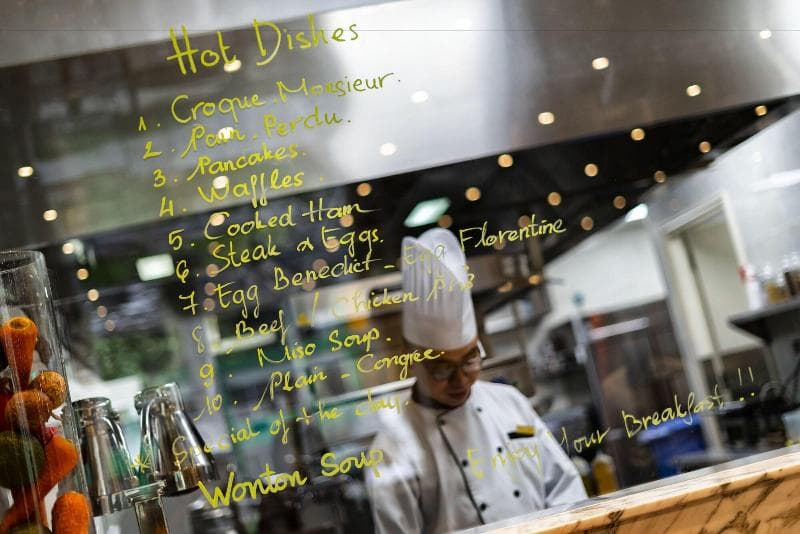 Hot Dishes
1. Croque Monsieur.
2. Pain Perdu.
3. Pancakes.
4. Waffles
5. Cooked Ham
6. Steak & Eggs.
7. Egg Benedict - Egg Florentine
8. Beef / Chicken Phở
9. Miso Soup.
10. Plain - Congee.
* Special of the day.
Wonton Soup
Enjoy Your Breakfast !!